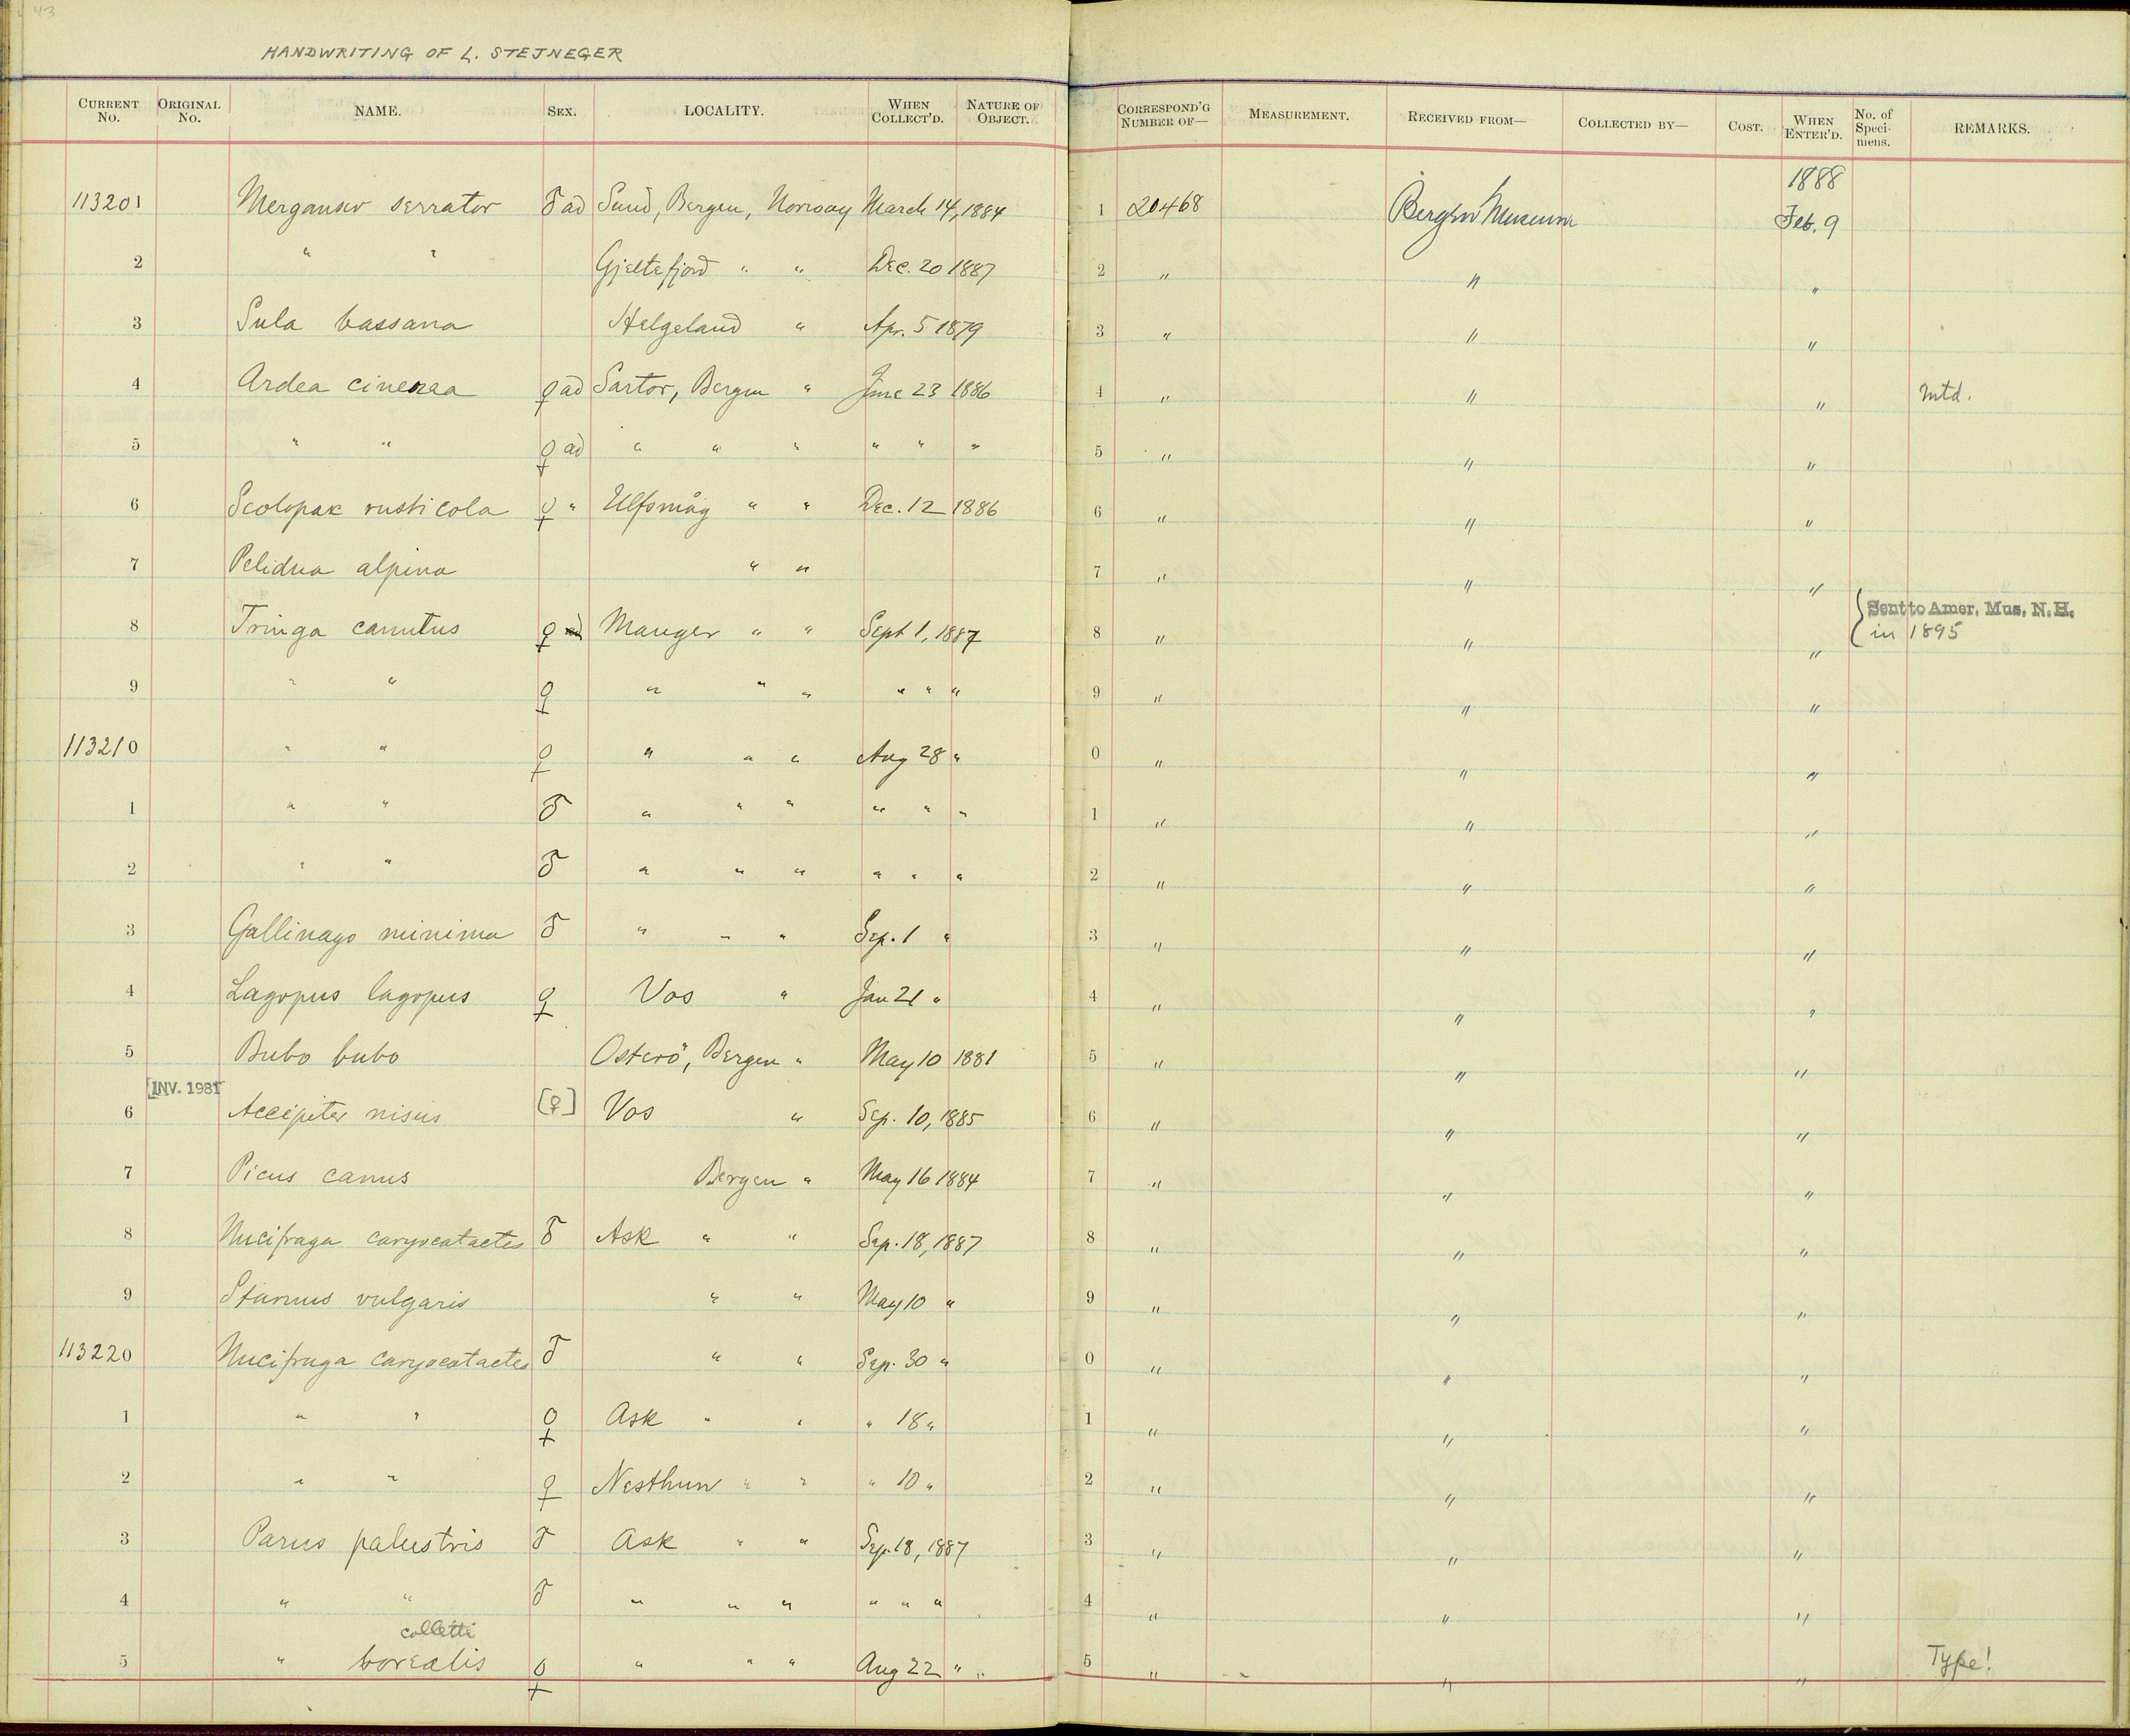 43
HANDWRITING OF L. STEJNEGER
CURRENT No. ORIGINAL No. NAME. SEX. LOCALITY. WHEN COLLECT'D. NATURE OF OBJECT. CORRESPOND'G NUMBER OF— MEASUREMENT. RECEIVED FROM— COLLECTED BY— COST. WHEN ENTER'D. No. of Speci-mens. REMARKS.
1888
113201 Merganser serrator ♂ ad Sund, Bergen, Norway March 14, 1884 1 20468 Bergen Museum Feb. 9
2 " " Gjeltefjord " " Dec. 20 1887 2 " " "
3 Sula bassana Helgeland " Apr. 5 1879 3 " " "
4 Ardea cinerea ♀ ad Sartor, Bergen " June 23 1886 4 " " " Mtd.
5 " " ♀ ad " " " " " " 5 " " "
6 Scolopax rusticola ♀ " Ulfsmåg " " Dec. 12 1886 6 " " "
7 Pelidna alpina " " 7 " " "
8 Tringa canutus ♀ ad Manger " " Sept 1, 1887 8 " " " { Sent to Amer. Mus. N. H. in 1895
9 " " ♀ " " " " " " 9 " " "
113210 " " ♀ " " " Aug 28 " 0 " " "
1 " " ♂ " " " " " " 1 " " "
2 " " ♂ " " " " " " 2 " " "
3 Gallinago minima ♂ " " " Sep. 1 " 3 " " "
4 Lagopus lagopus ♀ Vos " Jan 21 " 4 " " "
5 Bubo bubo Osterö, Bergen " May 10 1881 5 " " "
INV. 1981
6 Accipiter nisus [♀] Vos " Sep. 10, 1885 6 " " "
7 Picus canus Bergen " May 16 1884 7 " " "
8 Nucifraga caryocatactes ♂ Ask " " Sep. 18, 1887 8 " " "
9 Sturnus vulgaris " " May 10 " 9 " " "
113220 Nucifraga caryocatactes ♂ " " Sep. 30 " 0 " " "
1 " " ♀ Ask " " " 18 " 1 " " "
2 " " ♀ Nesthun " " " 10 " 2 " " "
3 Parus palustris ♂ Ask " " Sep. 18, 1887 3 " " "
4 " " ♂ " " " " " " 4 " " "
colletti
5 " borealis ♀ " " " Aug 22 " " 5 " " " " Type!